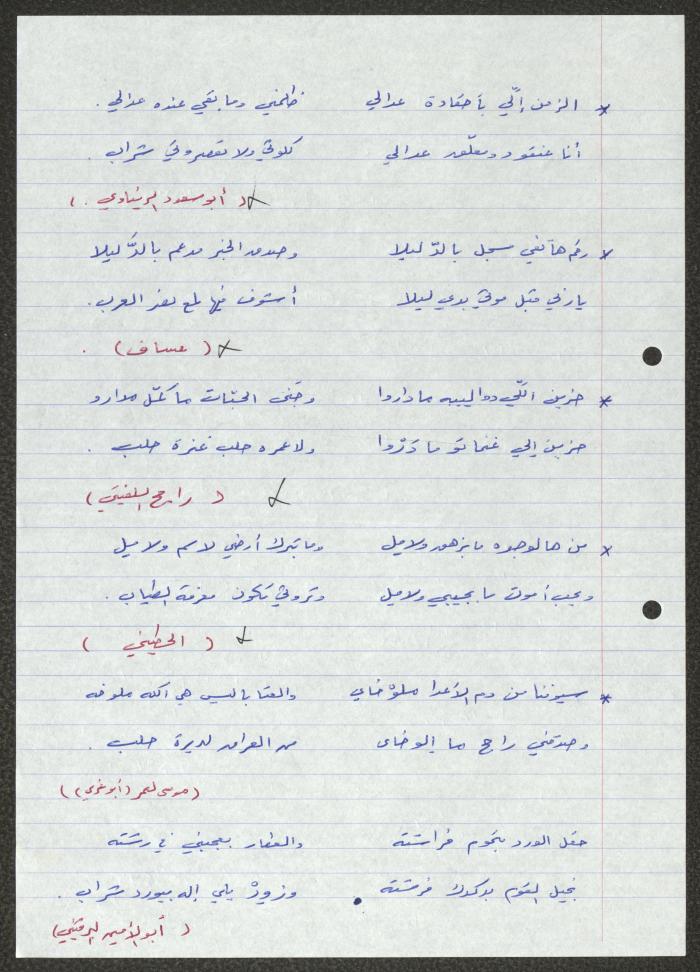 * الزمن إلّي بأحقادة عدالي ظالمني وما بقي عنده عدالي .
أنا عنقود ومعلّق عدالي كلوني ولا تعصروني شراب .
( أبو سعود البرغاوي . )
* رقم هاتفي مسجل بالدّ ليلا وصدق الخبر مدعم بالدّ ليلا
يا ربّي قبل موتي بدي ليلا أشوف فيها لمع نصر العرب .
( عساف ) .
* حزين اللّي دواليبه ما داروا وجنى الحبّات ما كمّل مدارو
حزين إلي غنماتو ما درّوا ولا عمره حلب عنزة حلب .
( رامح السلفيتي )
* من هالوجوه ما بزهق ولا مل وما بترك أرضي لاسم ولا ميل
وبحب أموت ما بجيبي ولا مل وتروتي تكون معزة الطياب .
( الحطيني )
* سيوفنا من دم الأعدا ملوّخاي والعتابا ليس هي أكله ملوخه
وصدقني راجح ما إلو خاي من العراق لديرة حلب .
( موسى لعمر ( أبو غري ) )
حقل الورد بتحوم فراشته والعطار بعجبني في رشته
بخيل القوم بدكدك فرشته وزودْ يلي إله بيورد شراب .
( أبو الأمين البرقيني )